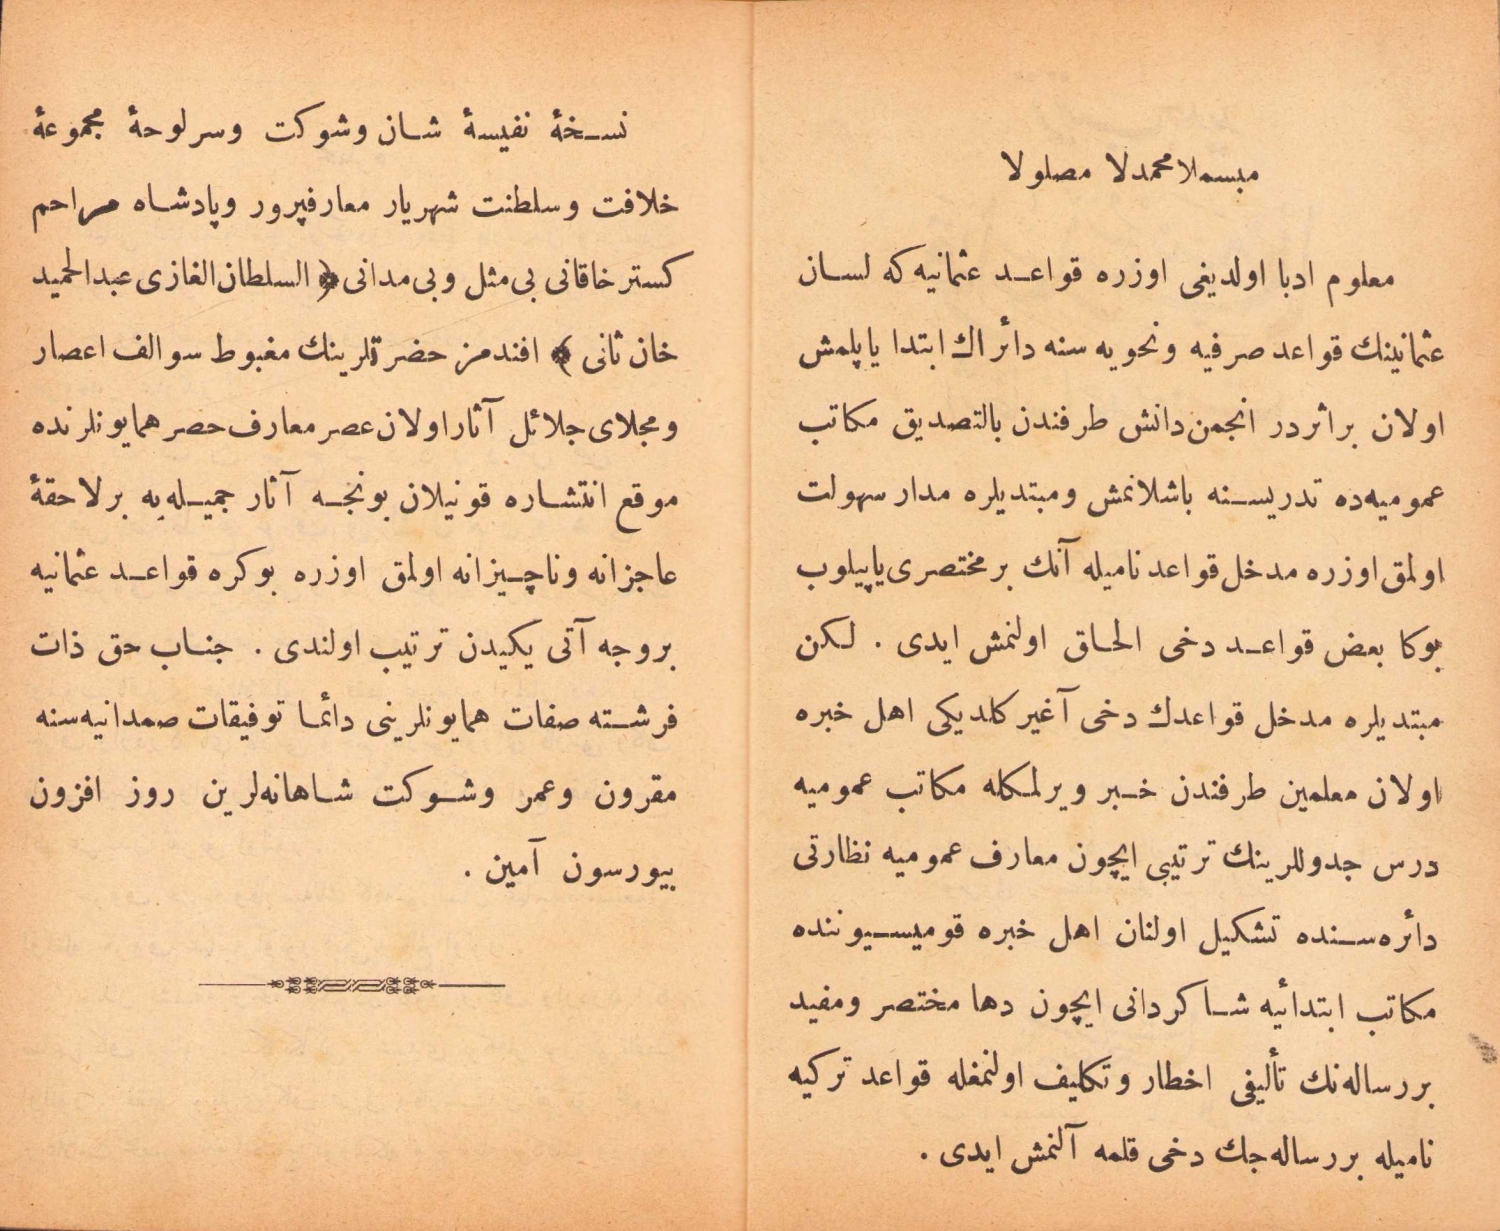 مبسملا محمدلا مصلولا
معلوم ادبا اولدیغی اوزره قواعد عثمانیه که لسان
عثمانینك قواعد صرفیه ونحویه سنه دائر اك ابتدا یاپلمش
اولان بر اثردر انجمن دانش طرفندن بالتصدیق مکاتب
عمومیه‌ده تدریسنه باشلانمش ومبتدیلره مدار سهولت
اولمق اوزره مدخل قواعد نامیله آنك بر مختصری یاپیلوب
بوکا بعض قواعد دخی الحاق اولنمش ایدی . لکن
مبتدیلره مدخل قواعدك دخی آغیر کلدیکی اهل خبره
اولان معلمین طرفندن خبر ویرلمکله مکاتب عمومیه
درس جدوللرینك ترتیبی ایچون معارف عمومیه نظارتی
دائره‌سنده تشکیل اولنان اهل خبره قومیسیوننده
مکاتب ابتدائیه شاکردانی ایچون دها مختصر ومفید
بر رساله‌نك تألیفی اخطار وتکلیف اولنمغله قواعد ترکیه
نامیله بر رساله‌جك دخی قلمه آلنمش ایدی .
نسخۀ نفیسۀ شان وشوکت وسرلوحۀ مجموعۀ
خلافت وسلطنت شهریار معارفپرور وپادشاه مراحم
کستر خاقانی بی‌مثل وبی‌مدانی ﴿ السلطان الغازی عبدالحمید
خان ثانی ﴾ افندمز حضرتلرینك مغبوط سوالف اعصار
ومجلای جلائل آثار اولان عصر معارف حصر همایونلرنده
موقع انتشاره قونیلان بونجه آثار جمیله‌یه بر لاحقۀ
عاجزانه وناچیزانه اولمق اوزره بوکره قواعد عثمانیه
بروجه آتی یکیدن ترتیب اولندی . جناب حق ذات
فرشته صفات همایونلرینی دائما توفیقات صمدانیه‌سنه
مقرون وعمر وشوکت شاهانه‌لرین روز افزون
بیورسون آمین .